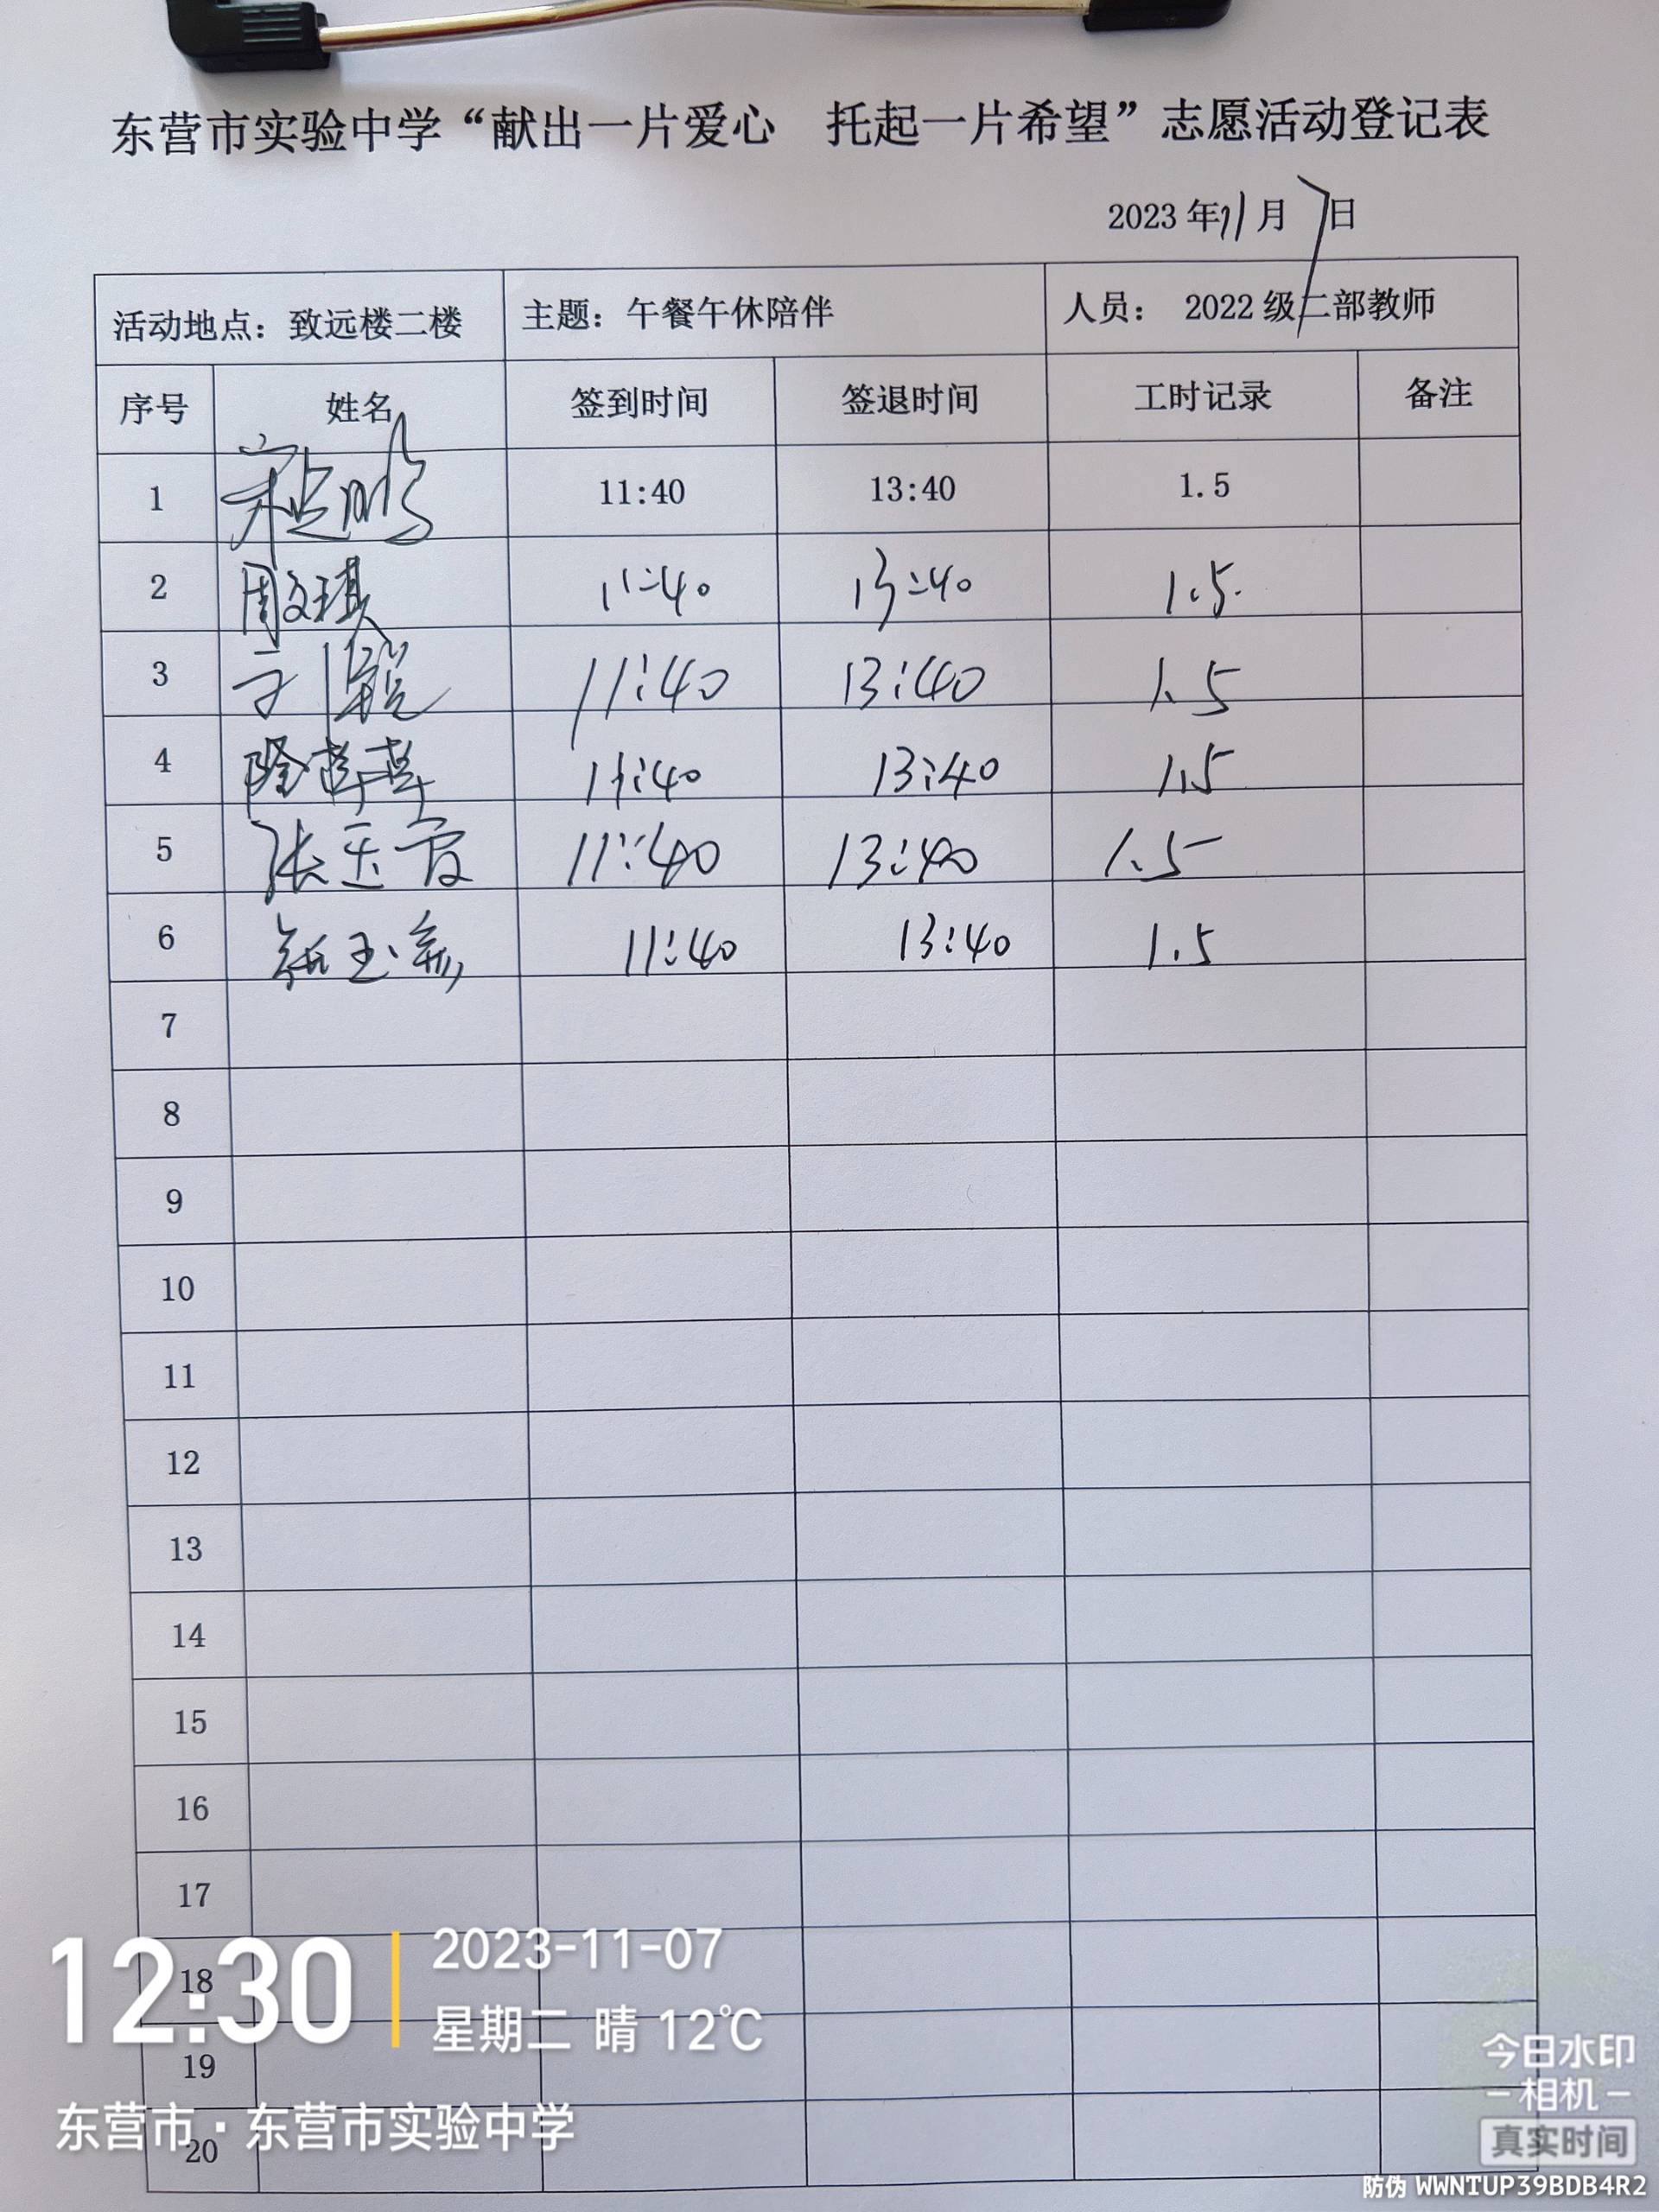 东营市实验中学“献出一片爱心 托起一片希望”志愿活动登记表
2023 年 11 月 7 日
活动地点：致远楼二楼 主题：午餐午休陪伴 人员： 2022 级二部教师
序号 姓名 签到时间 签退时间 工时记录 备注
1 11:40 13:40 1.5
2 周文琪 11:40 13:40 1.5.
3 11:40 13:40 1.5
4 11:40 13:40 1.5
5 张玉霞 11:40 13:40 1.5
6 11:40 13:40 1.5
7
8
9
10
11
12
13
14
15
16
17
18
19
20
12:30
2023-11-07
星期二 晴 12℃
东营市·东营市实验中学
今日水印
相机
真实时间
防伪 WWNTUP39BDB4R2